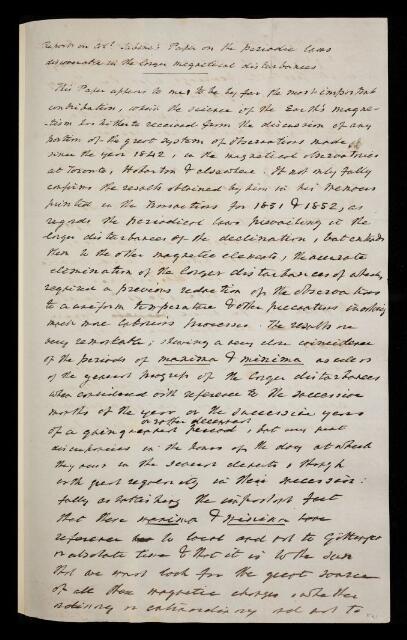 Report on Col. Sabine's Paper on the periodic laws
discoverable in the larger magnetical disturbances
This Paper appears to me to be by far the most important
contribution, which the science of the Earth's Magne-
tism has hitherto received from the discussion of any
portion of the great system of observations made
since the year 1842, in the magnetical observatories
at Toronto, Hobarton & elsewhere. It not only fully
confirms the results obtained by him in his Memoirs
printed in the Transactions for 1851 & 1852, as
regards the periodical laws prevailing in the
larger disturbances of the declination, but extends
them to the other magnetic elements, the accurate
elimination of the larger disturbances of which
required a previous reduction of the observations
to a uniform temperature & other precautions involving
much more laborious processes. The results are
very remarkable; shewing a very close coincidence
of the periods of maxima & minima as well as
of the general progress of the larger disturbances
when considered with reference to the successive
months of the year or the successive years
or rather decennial
of a period, but very great
discrepancies in the hours of the day at which
they occur in the several elements, though
with great regularity in their succession:
fully establishing the important fact
that these maxima & minima have
reference to local and not to Göttingen
or absolute time & that it is to the sun
that we must look for the great source
of all these magnetic changes whether
ordinary or extraordinary and not to